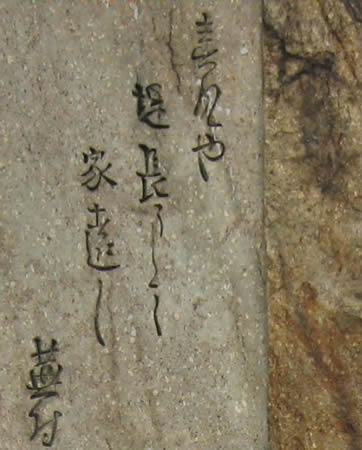 春風や
堤長うして
家遠し
蕪村